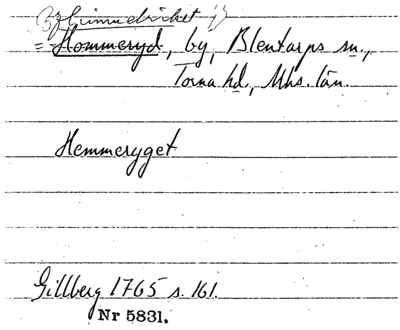 = Hommeryd, by, Blentarps sn.,
Torna hd., Mhs. län.
Hemmeryget
Gillberg 1765 s. 161.
Nr 5831.